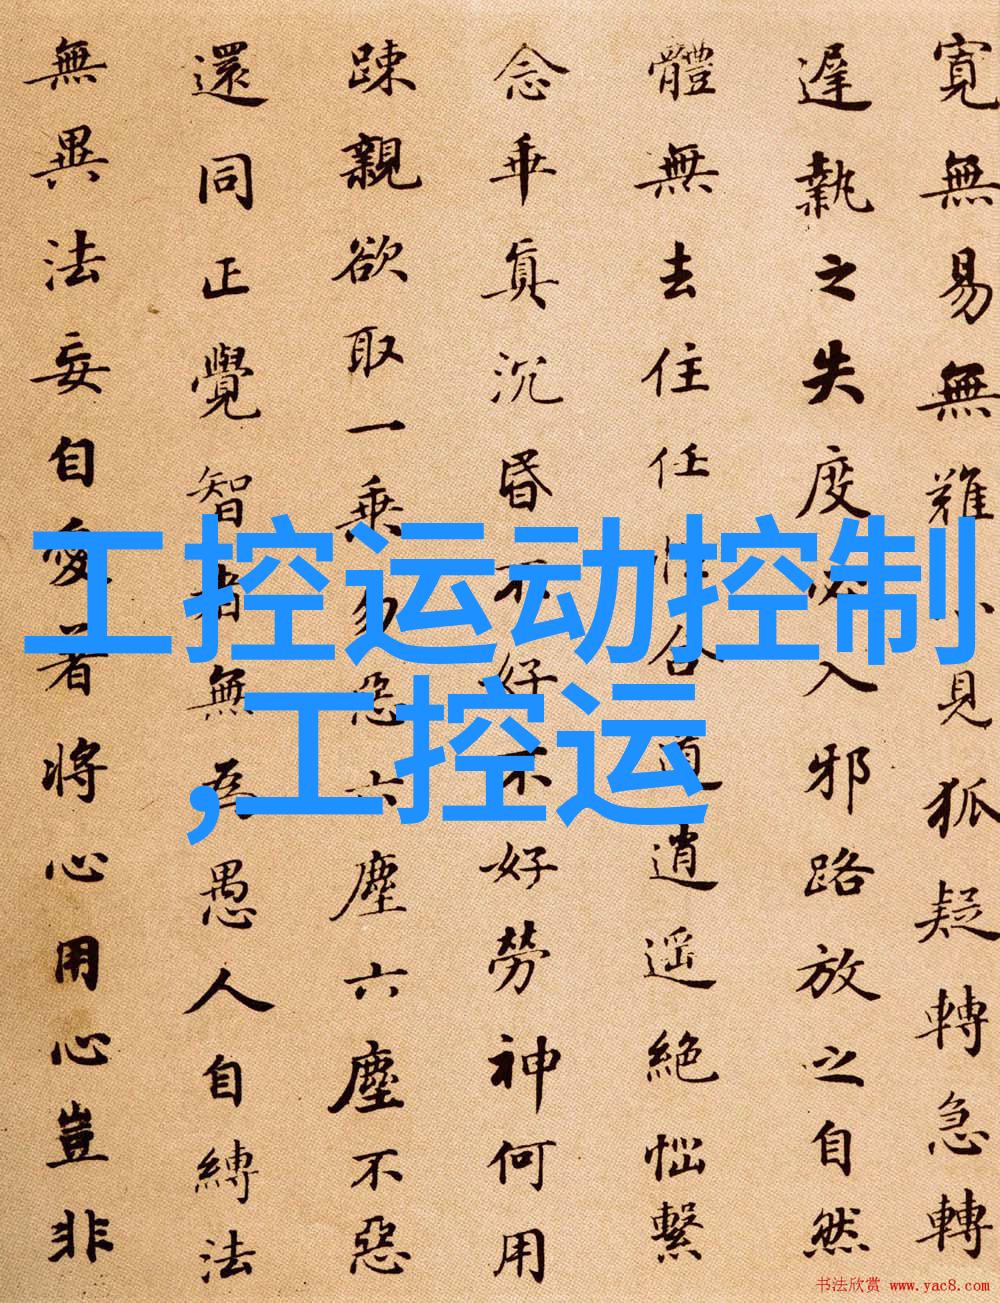 寬無易無難小見狐疑轉急轉
遲執之失度必入邪路放之自然
體無去住任性合道逍遥絶惱繫
念乖真沉昏不好不好勞神何用
踈親欲取一乘勿惡六塵六塵不惡
還同正覺智者無為愚人自縛法
無異法妄自愛著將心用心豈非
工控运动控制
,工控运
书法欣赏 www.yac8.com